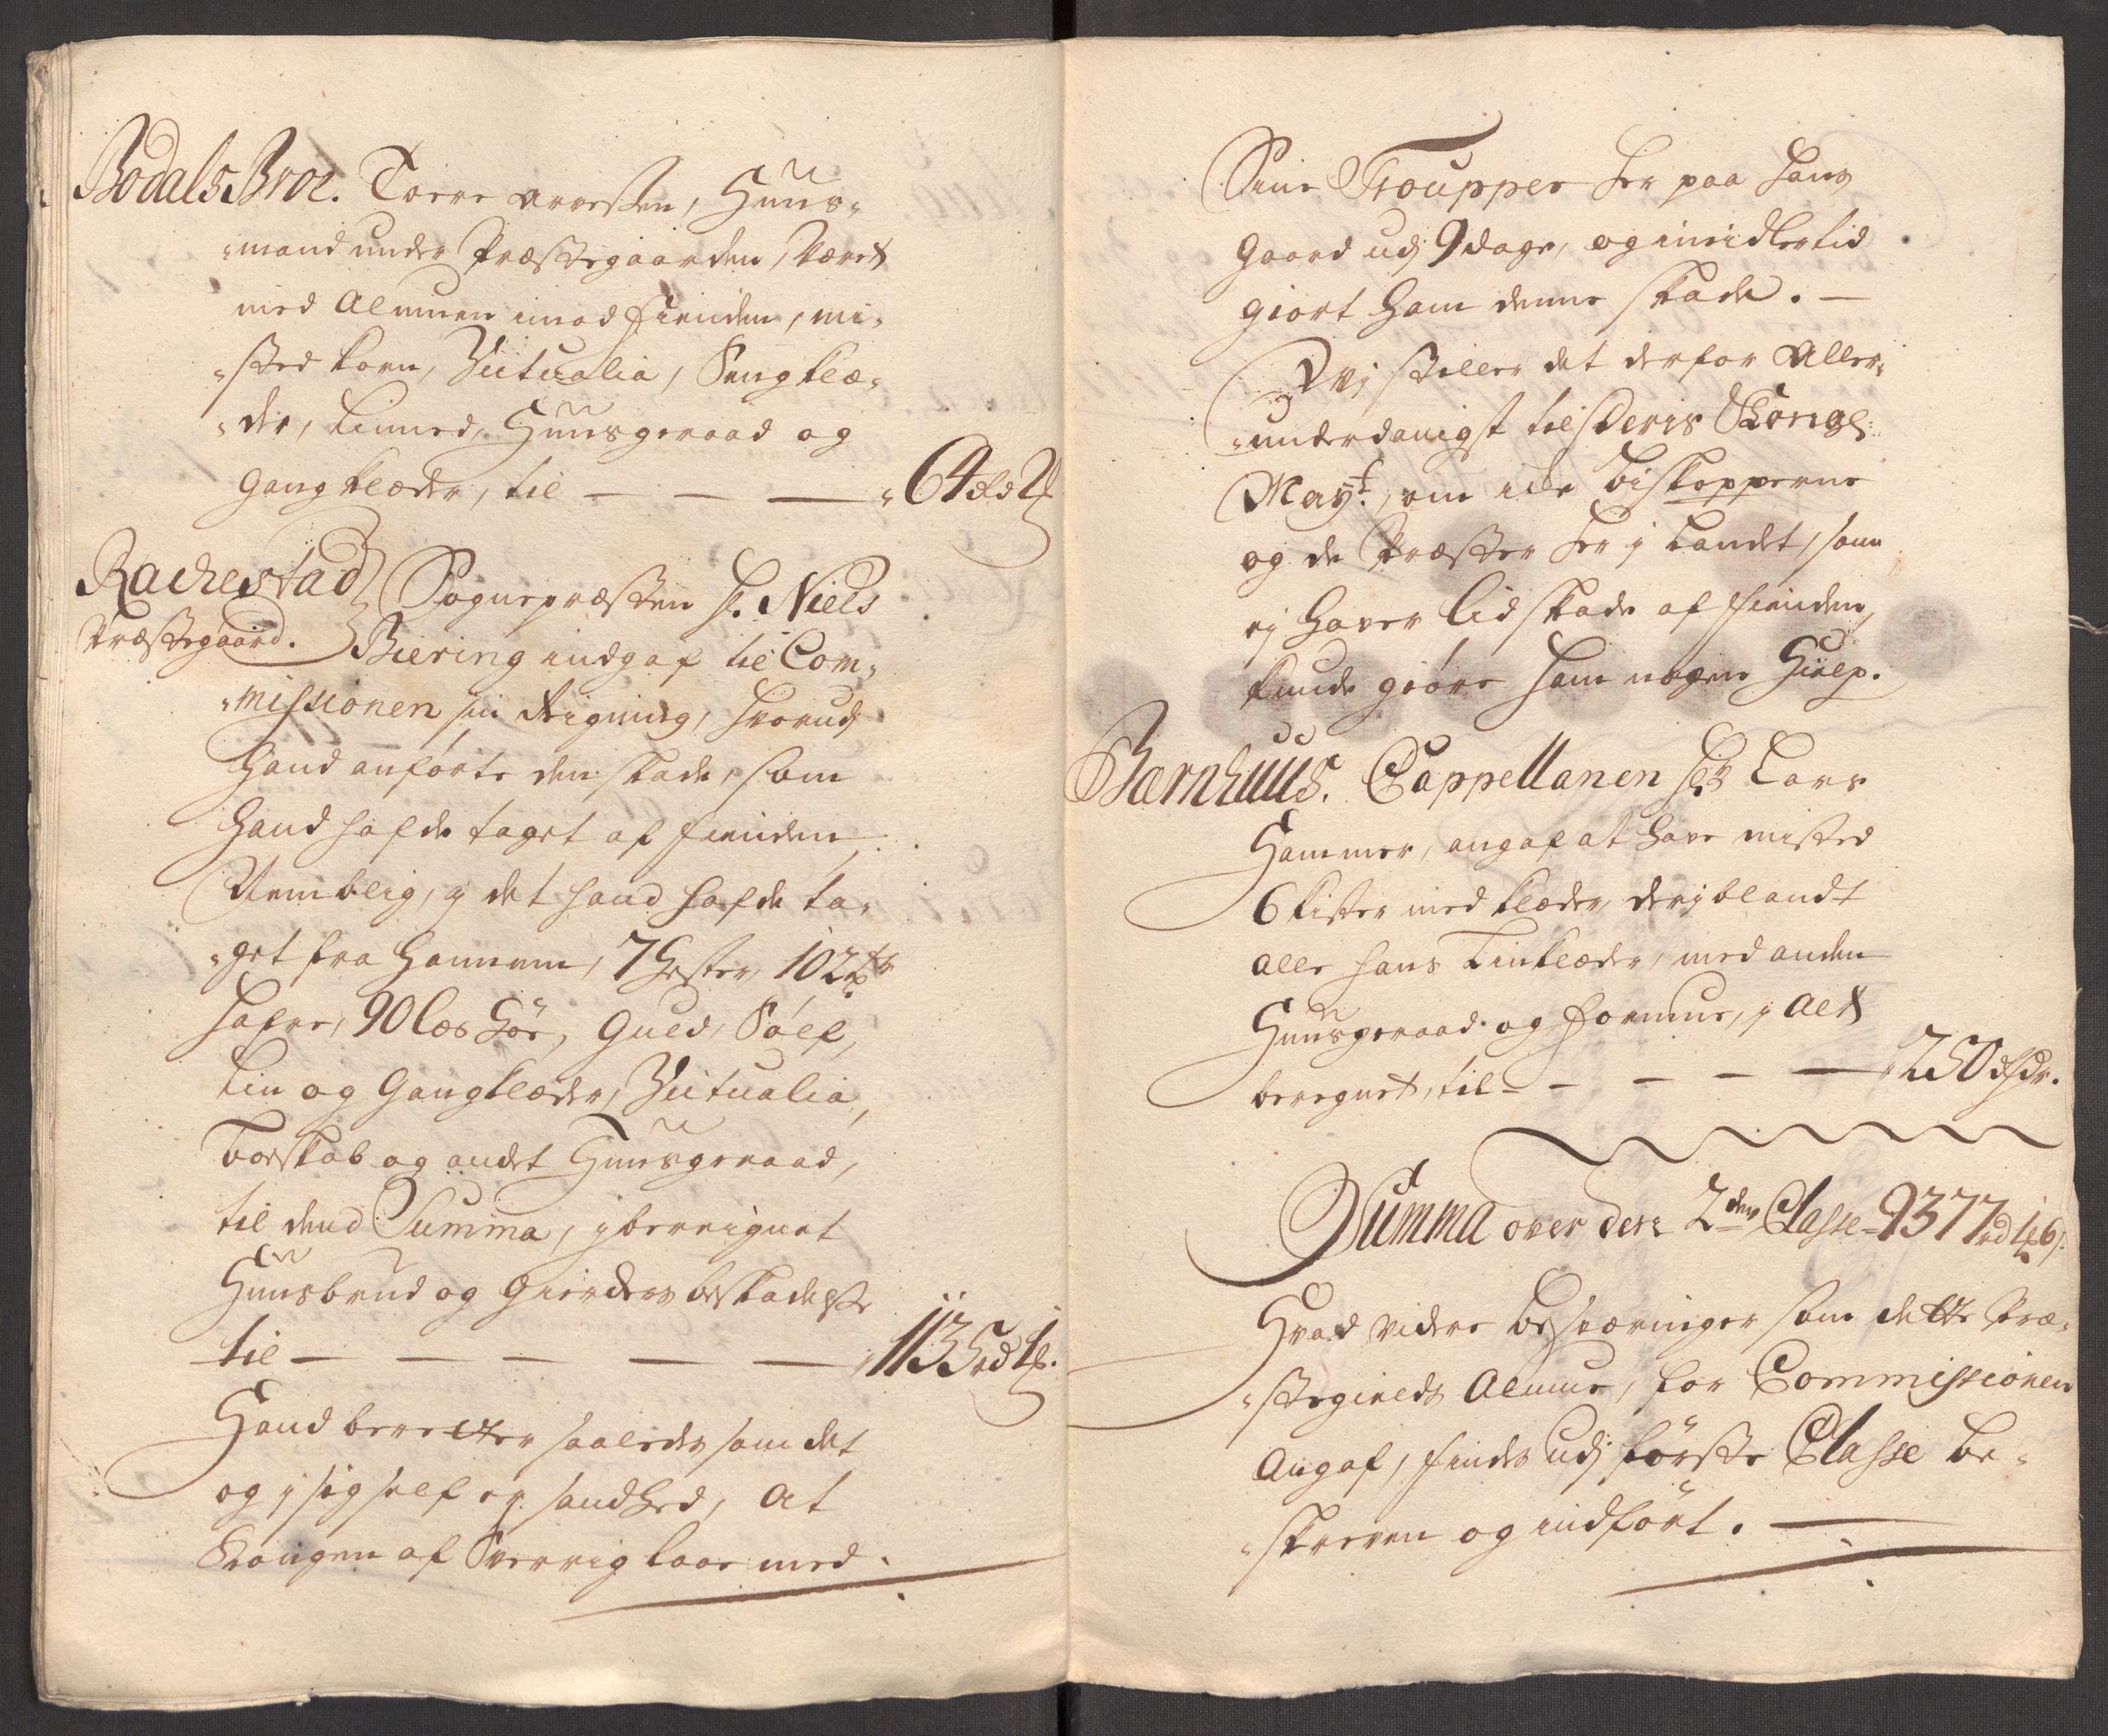 Bodals Broe. Torre Arvessen, Huus-
mand under Præstegaarden, Været
med Almuen imod Fienden, mi-
sted korn, Victualia, Sengklæ-
der, Linned, Huusgeraad og
gangklæder, til — — — 64 rd 2
Rachestad Sognepræsten H. Niels
Præstegaard. Biering indgaf til Com-
missionen sin Reigning, hvorudj
hand anførte den skade, som
hand hafde taget af fienden,
Nemblig, at det hand hafde ta-
get fra hannem, 7 Hester, 102 tr
hafre, 90 læs høe, Guld, Sølf,
Lin og Gangklæder, Victualia,
boeskab og andet Huusgeraad,
til dend Summa, iberignet
Huusbrud og Gierders beskadelse
til — — — — — 1135 rd 1
Hand beretter saaledes som det
og i sig self er sandhed, at
Kongen af Sverrig laae med
Sine Troupper her paa hans
gaard udj 9 dage, og imidlertid
giort ham denne skade. —
Vj stiller det derfor Aller-
underdanigst til Deris Kongl.
Mayt., om icke biskopperne
og de Præster her j Landet, som
ej haver lid skade af fienden,
kunde giøre ham nogen hielp.
Bærnhuus. Cappellanen Hr Lars
Hammer, angaf at have misted
6 kister med klæder, deriblandt
alle hans Linklæder, med anden
Huusgeraad og formue, j alt
beregnet, til — — — — 250 rdr.
Summa over den 2den Classe — 9377 rd 1 6
Hvad videre besværinger som dette Præ-
stegields Almue, for Commissionen
Angaf, findes udj første Classe be-
skreven og indført. —